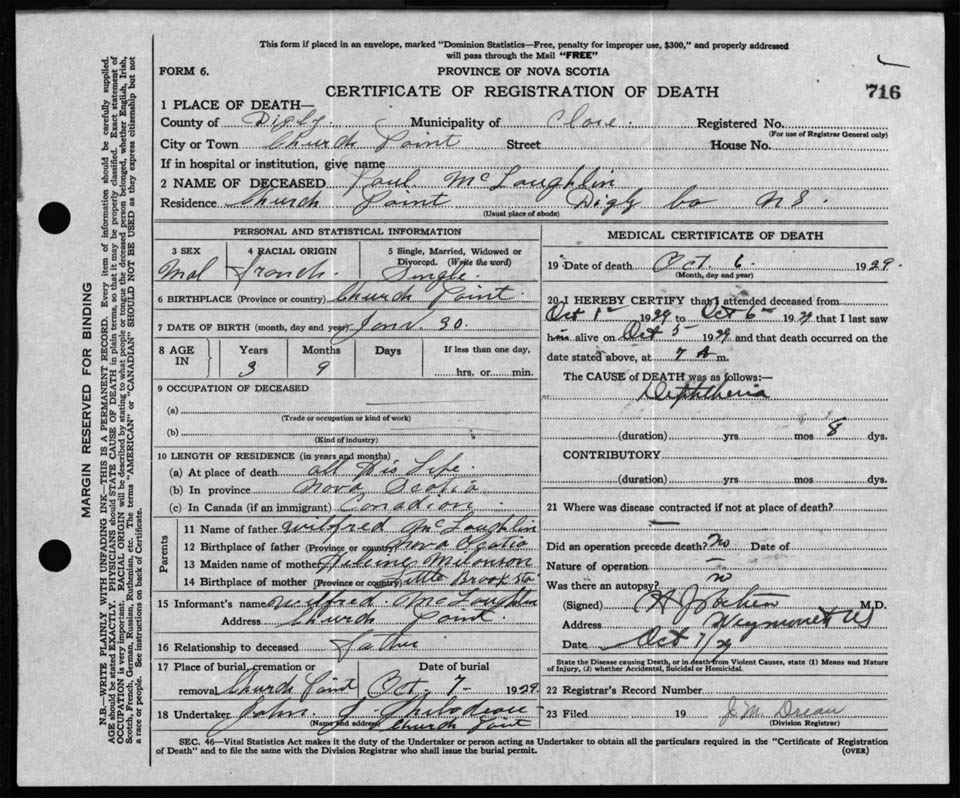 This form if placed in an envelope, marked "Dominion Statistics—Free, penalty for improper use, $300," and properly addressed
will pass through the Mail "FREE"
FORM 6. PROVINCE OF NOVA SCOTIA
CERTIFICATE OF REGISTRATION OF DEATH 716
1 PLACE OF DEATH—
County of Digby Municipality of Clare Registered No.
(For use of Registrar General only)
City or Town Church Point Street House No.
If in hospital or institution, give name
2 NAME OF DECEASED Paul McLaughlin
Residence Church Point Digby Co N S.
(Usual place of abode)
PERSONAL AND STATISTICAL INFORMATION
3 SEX 4 RACIAL ORIGIN 5 Single, Married, Widowed or
Divorced. (Write the word)
Mal French. Single.
6 BIRTHPLACE (Province or country) Church Point.
7 DATE OF BIRTH (month, day and year) Janv. 30.
8 AGE IN Years Months Days If less than one day,
3 9 hrs. or min.
9 OCCUPATION OF DECEASED
(a)
(Trade or occupation or kind of work)
(b)
(Kind of industry)
10 LENGTH OF RESIDENCE (in years and months)
(a) At place of death all His Life.
(b) In province Nova Scotia
(c) In Canada (if an immigrant) Canadian
Parents
11 Name of father Wilfred McLaughlin
12 Birthplace of father (Province or country) Nova Scotia
13 Maiden name of mother Melanson
14 Birthplace of mother (Province or country) Little Brook Sta
15 Informant's name Wilfred McLaughlin
Address Church Point.
16 Relationship to deceased Father
17 Place of burial, cremation or Date of burial
removal Church Point Oct. 7- 1929
18 Undertaker John
(Name and address) Church Point
MEDICAL CERTIFICATE OF DEATH
19 Date of death Oct. 6 1929.
(Month, day and year)
20 I HEREBY CERTIFY that I attended deceased from
Oct 1st 1929 to Oct 6th 1929 that I last saw
him alive on Oct 5 1929 and that death occurred on the
date stated above, at 7 A m.
The CAUSE of DEATH was as follows:—
Diphtheria
(duration) yrs. mos 8 dys.
CONTRIBUTORY
(duration) yrs. mos dys.
21 Where was disease contracted if not at place of death?
Did an operation precede death? No Date of
Nature of operation
Was there an autopsy? no
(Signed) M.D.
Address Weymouth NS
Date Oct 7/29
State the Disease causing Death, or in death from Violent Causes, state (1) Means and Nature
of Injury, (2) whether Accidental, Suicidal or Homicidal.
22 Registrar's Record Number
23 Filed 19
(Division Registrar)
SEC. 46—Vital Statistics Act makes it the duty of the Undertaker or person acting as Undertaker to obtain all the particulars required in the "Certificate of Registration
of Death" and to file the same with the Division Registrar who shall issue the burial permit. (OVER)
MARGIN RESERVED FOR BINDING
N.B.—WRITE PLAINLY WITH UNFADING INK—THIS IS A PERMANENT RECORD. Every item of information should be carefully supplied.
AGE should be stated EXACTLY. PHYSICIANS should STATE CAUSE OF DEATH in plain terms, so that it may be properly classified. Exact statement of
OCCUPATION is very important. RACIAL ORIGIN will be described by stating to what people or tongue the deceased person belonged, whether English, Irish,
Scotch, French, German, Russian, Ruthenian, etc. The terms "AMERICAN" or "CANADIAN" SHOULD NOT BE USED as they express citizenship but not
a race or people. See instructions on back of Certificate.